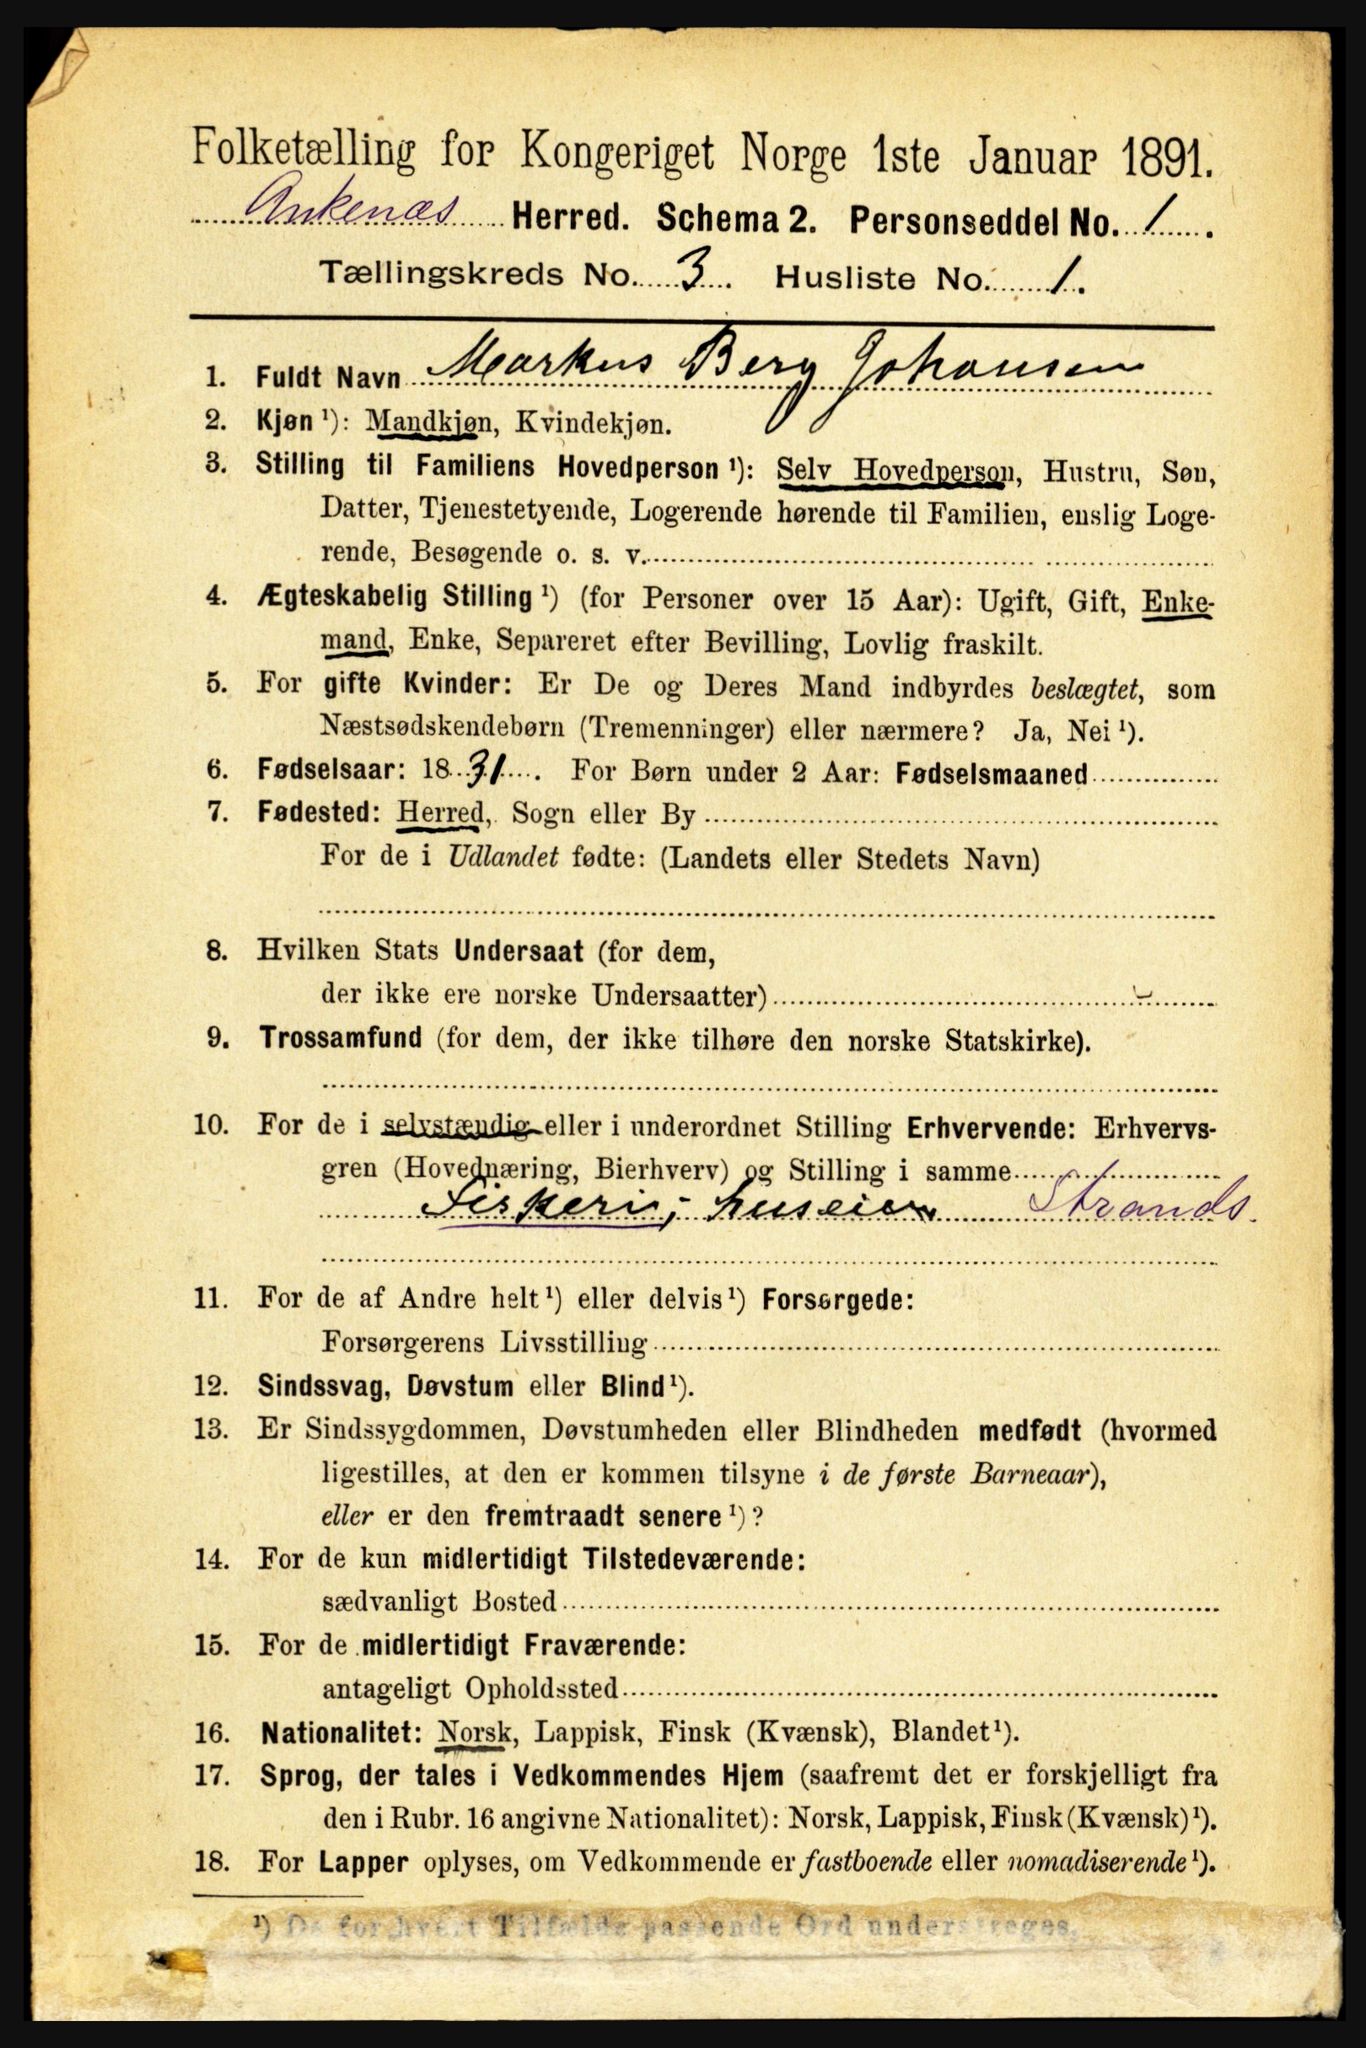 Folketælling for Kongeriget Norge 1ste Januar 1891.
Ankenæs Herred. Schema 2. Personseddel No. 1.
Tællingskreds No. 3. Husliste No. 1.
1. Fuldt Navn Markus Berg Johansen
2. Kjøn ¹): Mandkjøn, Kvindekjøn.
3. Stilling til Familiens Hovedperson ¹): Selv Hovedperson, Hustru, Søn,
Datter, Tjenestetyende, Logerende hørende til Familien, enslig Loge-
rende, Besøgende o. s. v.
4. Ægteskabelig Stilling ¹) (for Personer over 15 Aar): Ugift, Gift, Enke-
mand, Enke, Separeret efter Bevilling, Lovlig fraskilt.
5. For gifte Kvinder: Er De og Deres Mand indbyrdes beslægtet, som
Næstsødskendebørn (Tremenninger) eller nærmere? Ja, Nei ¹).
6. Fødselsaar: 1831. For Børn under 2 Aar: Fødselsmaaned
7. Fødested: Herred, Sogn eller By
For de i Udlandet fødte: (Landets eller Stedets Navn)
8. Hvilken Stats Undersaat (for dem,
der ikke ere norske Undersaatter)
9. Trossamfund (for dem, der ikke tilhøre den norske Statskirke).
10. For de i selvstændig eller i underordnet Stilling Erhvervende: Erhvervs-
gren (Hovednæring, Bierhverv) og Stilling i samme
Fiskeri; huseier Strands.
11. For de af Andre helt ¹) eller delvis ¹) Forsørgede:
Forsørgerens Livsstilling
12. Sindssvag, Døvstum eller Blind ¹).
13. Er Sindssygdommen, Døvstumheden eller Blindheden medfødt (hvormed
ligestilles, at den er kommen tilsyne i de første Barneaar),
eller er den fremtraadt senere ¹)?
14. For de kun midlertidigt Tilstedeværende:
sædvanligt Bosted
15. For de midlertidigt Fraværende:
antageligt Opholdssted
16. Nationalitet: Norsk, Lappisk, Finsk (Kvænsk), Blandet ¹).
17. Sprog, der tales i Vedkommendes Hjem (saafremt det er forskjelligt fra
den i Rubr. 16 angivne Nationalitet): Norsk, Lappisk, Finsk (Kvænsk) ¹).
18. For Lapper oplyses, om Vedkommende er fastboende eller nomadiserende ¹).
¹) De for hvert Tilfælde passende Ord understreges.